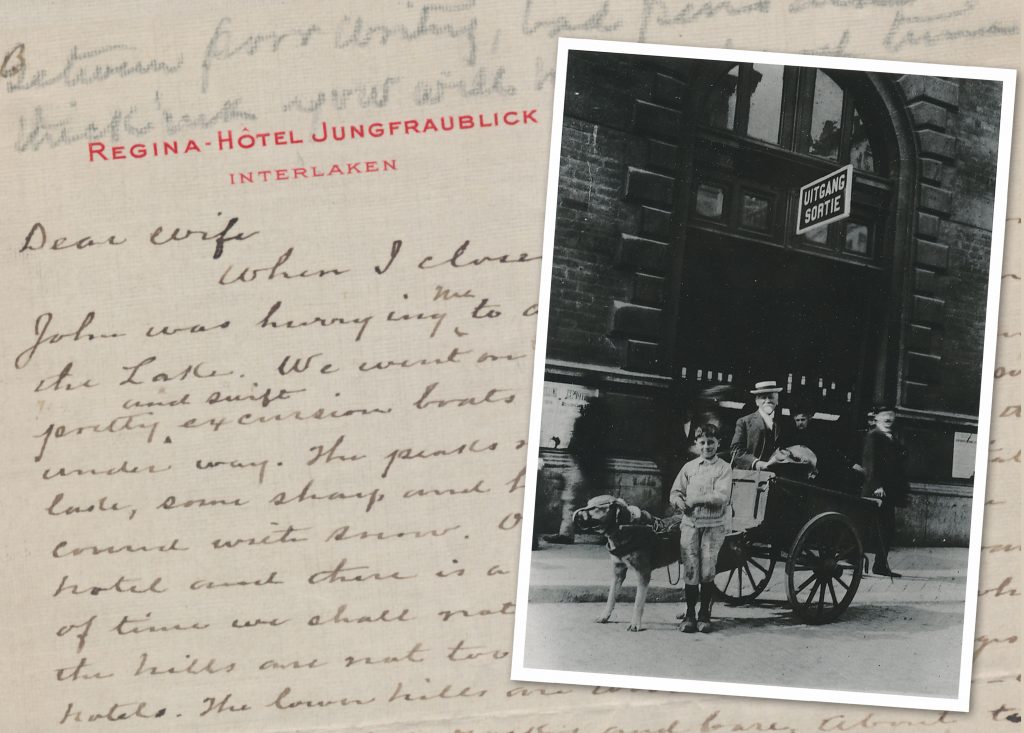 Between poor writing, bad pens and
thick ink you will
REGINA-HÔTEL JUNGFRAUBLICK
INTERLAKEN
Dear wife
When I close
me
John was hurrying to
the Lake. We went on
and swift
pretty excursion boats
under way. The peaks
lade, some sharp and
covered with snow.
hotel and there is a
of time we shall not
the hills are not too
hotels. The lower hills are
and bare, About to
UITGANG
SORTIE